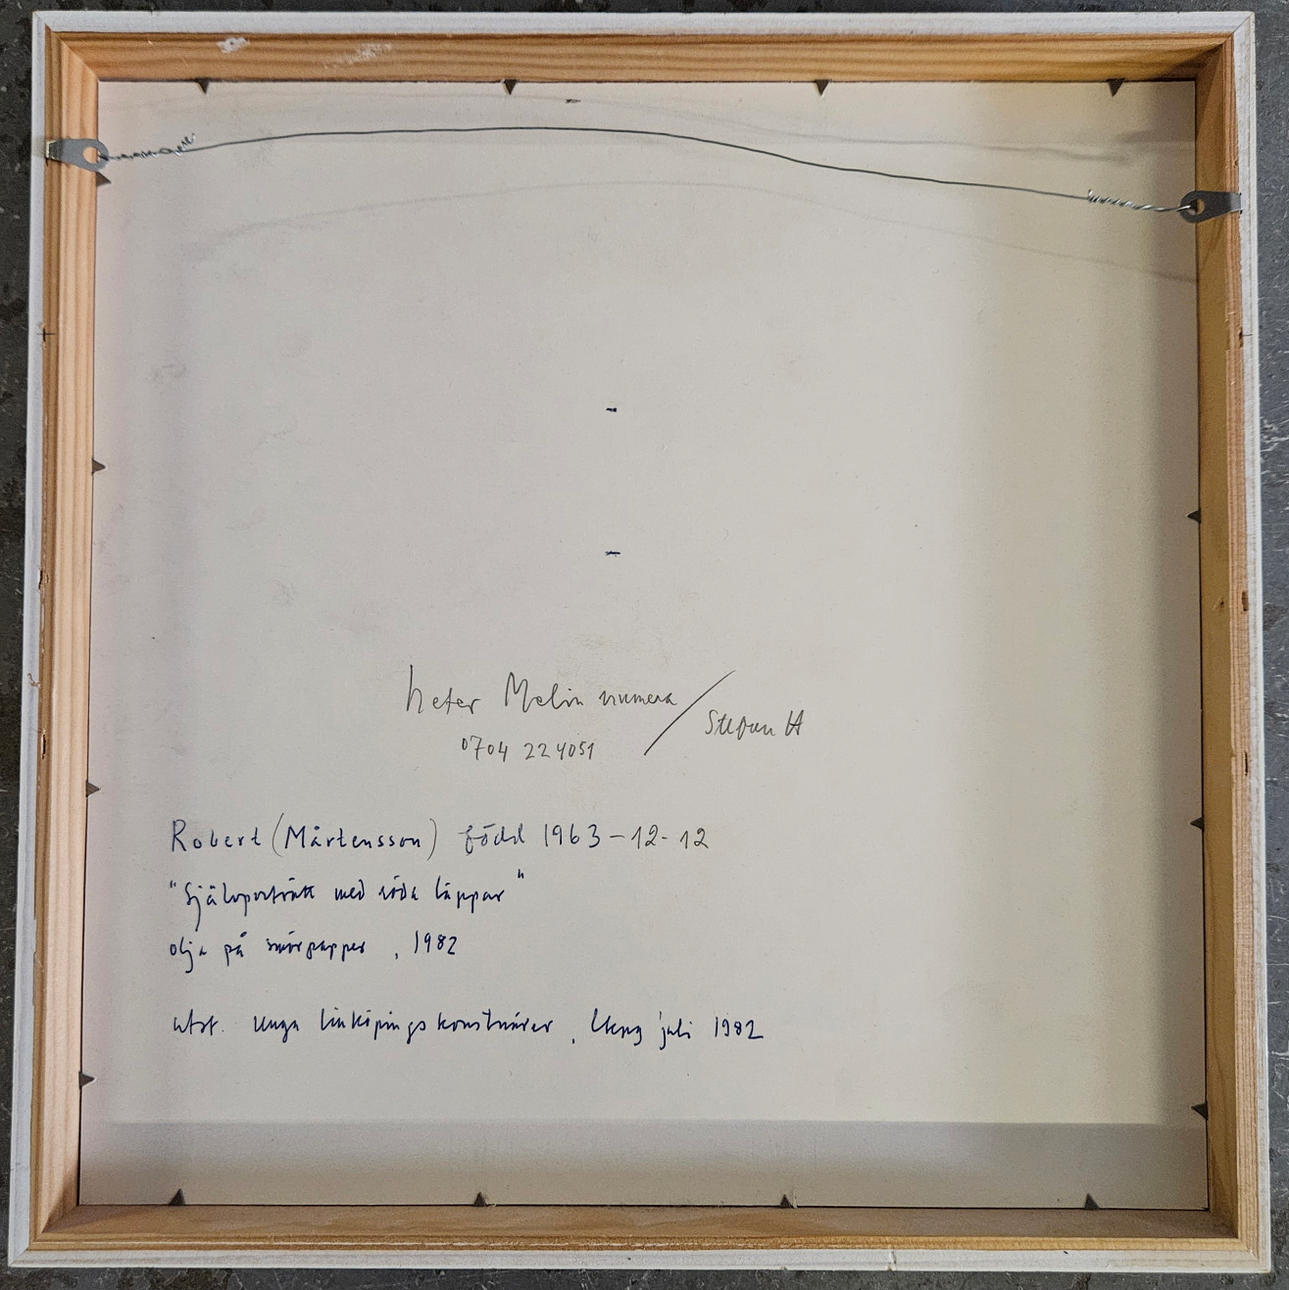 heter Melin numera / Stefan H
0704 224051
Robert (Mårtensson) född 1963-12-12
"Självporträtt med röda läppar"
olja på smörpapper, 1982
utst. Unga linköpingskonstnärer, Lkpg juli 1982